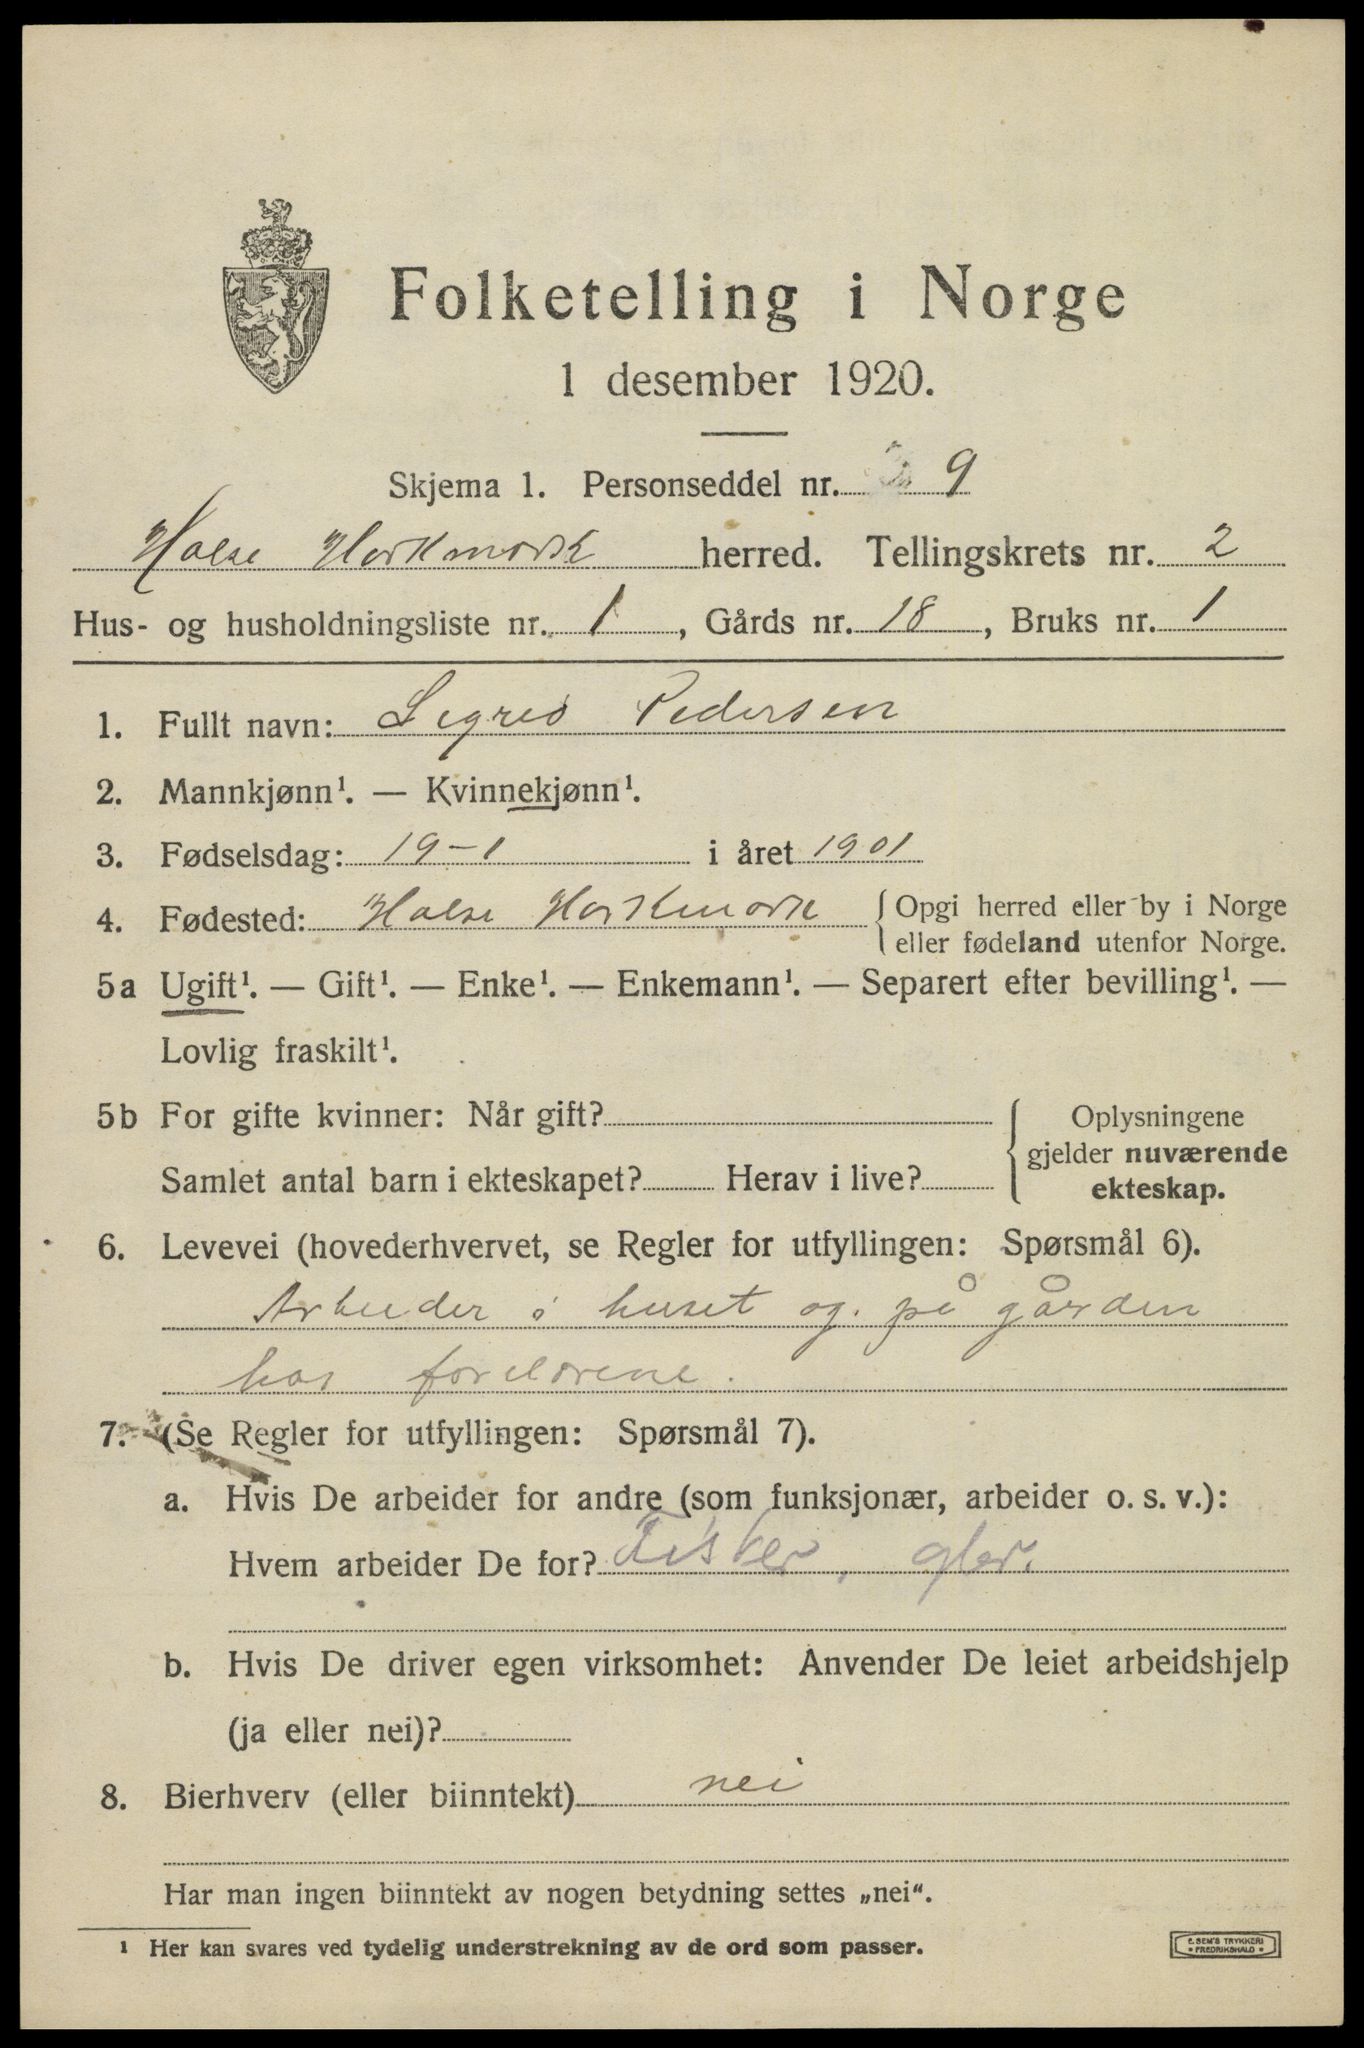 Folketelling i Norge
1 desember 1920.
Skjema 1. Personseddel nr. 9
Halse Harkmark herred. Tellingskrets nr. 2
Hus- og husholdningsliste nr. 1, Gårds nr. 18, Bruks nr. 1
1. Fullt navn: Sigrid Pedersen
2. Mannkjønn¹. — Kvinnekjønn¹.
3. Fødselsdag: 19-1 i året 1901
4. Fødested: Halse Harkmark { Opgi herred eller by i Norge
eller fødeland utenfor Norge.
5a Ugift¹. — Gift¹. — Enke¹. — Enkemann¹. — Separert efter bevilling¹. —
Lovlig fraskilt¹.
5b For gifte kvinner: Når gift?
Samlet antal barn i ekteskapet? Herav i live?
Oplysningene
gjelder nuværende
ekteskap.
6. Levevei (hovederhvervet, se Regler for utfyllingen: Spørsmål 6).
Arbeider i huset og på gården
hos foreldrene.
7. (Se Regler for utfyllingen: Spørsmål 7).
a. Hvis De arbeider for andre (som funksjonær, arbeider o. s. v.):
Hvem arbeider De for? Fisker, gbr.
b. Hvis De driver egen virksomhet: Anvender De leiet arbeidshjelp
(ja eller nei)?
8. Bierhverv (eller biinntekt) nei
Har man ingen biinntekt av nogen betydning settes „nei“.
¹ Her kan svares ved tydelig understrekning av de ord som passer.
E. SEM'S TRYKKERI
FREDRIKSHALD